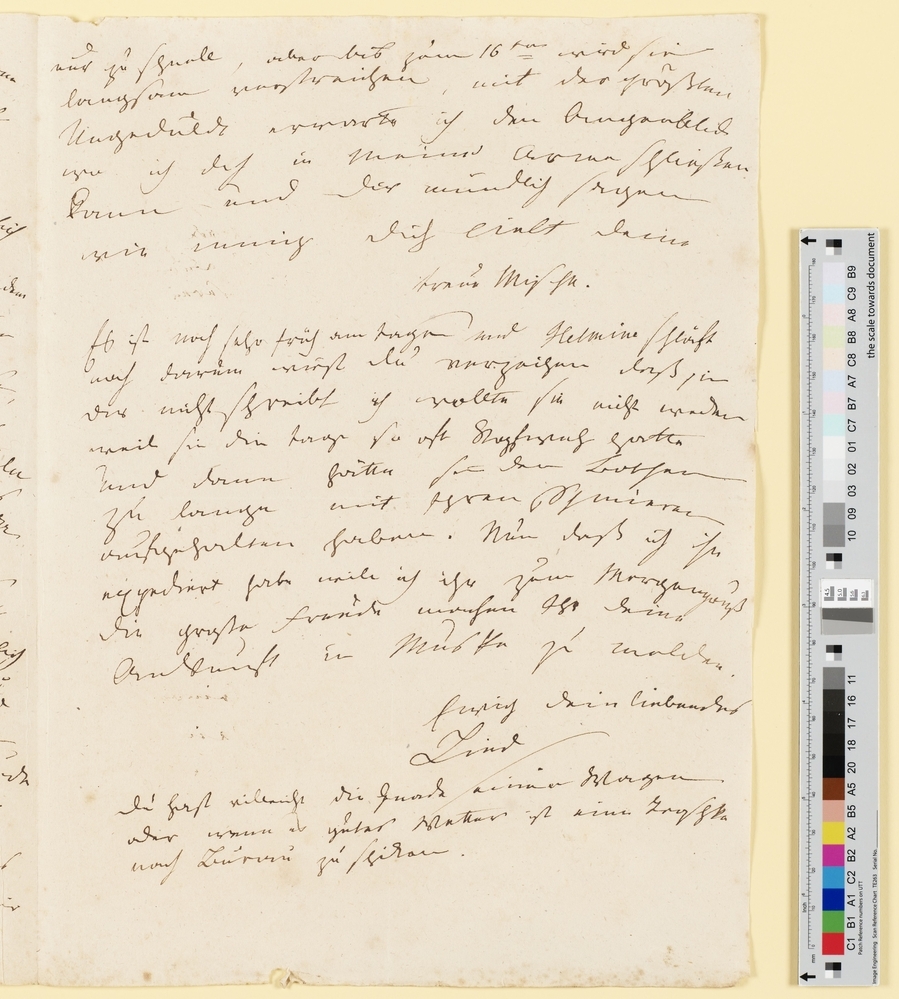 nur zu schnell, aber bis zum 16ten wird sie
langsam verstreichen, mit der größten
Ungeduld erwarte ich den Augenblick
wo ich dich in meine Arme schließen
kann und dir mündlich sagen
wie innig dich liebt deine
treue
Es ist noch sehr früh am tage und Helmine schläft
noch darum wirst du verzeihen daß sie
dir nicht schreibt ich wollte sie nicht wecken
weil sie die tage so oft Kopfweh hatte
und dann hätte sie den Bothen
zu lange mit ihren Schmieren
aufgehalten haben. Nun daß ich ihn
expediert habe will ich ihr zum Morgengruß
die große Freude machen ihr deine
Ankunft in Muska zu melden.
Ewig dein liebendes
Kind
du hast vielleicht die Gnade einen Wagen
oder wenn es gutes Wetter ist eine Troschke
nach Burau zu schiken.
the scale towards document
B9
C9
A8
B8
C8
A7
B7
C7
01
02
03
09
10
11
16
17
18
20
A5
B5
A2
B2
C2
A1
B1
C1
Patch Reference numbers on UTT
Image Engineering Scan Reference Chart TE263 Serial No.